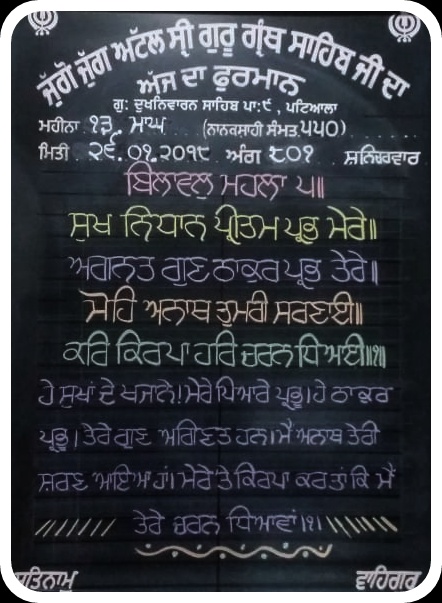 ਜੁੱਗੋ ਜੁੱਗ ਅਟੱਲ ਸ੍ਰੀ ਗੁਰੂ ਗ੍ਰੰਥ ਸਾਹਿਬ ਜੀ ਦਾ
ਅੱਜ ਦਾ ਫੁਰਮਾਨ
ਗੁ: ਦੁਖਨਿਵਾਰਨ ਸਾਹਿਬ ਪਾ:੯ , ਪਟਿਆਲਾ
ਮਹੀਨਾ ੧੩, ਮਾਘ (ਨਾਨਕਸਾਹੀ ਸੰਮਤ ੫੫੦)
ਮਿਤੀ ੨੬.੦੧.੨੦੧੮ ਅੰਗ ੮੦੧ ਸ਼ਨਿਚਰਵਾਰ
ਬਿਲਾਵਲੁ ਮਹਲਾ ੫॥
ਸੁਖ ਨਿਧਾਨ ਪ੍ਰੀਤਮ ਪ੍ਰਭ ਮੇਰੇ॥
ਅਗਨਤ ਗੁਣ ਠਾਕੁਰ ਪ੍ਰਭ ਤੇਰੇ॥
ਮੋਹਿ ਅਨਾਥ ਤੁਮਰੀ ਸਰਣਾਈ॥
ਕਰਿ ਕਿਰਪਾ ਹਰਿ ਚਰਨ ਧਿਆਈ॥੧॥
ਹੇ ਸੁਖਾਂ ਦੇ ਖਜਾਨੇ!ਮੇਰੇ ਪਿਆਰੇ ਪ੍ਰਭੂ!ਹੇ ਠਾਕੁਰ
ਪ੍ਰਭੂ!ਤੇਰੇ ਗੁਣ ਅਗਿਣਤ ਹਨ।ਮੈਂ ਅਨਾਥ ਤੇਰੀ
ਸ਼ਰਣ ਆਇਆ ਹਾਂ।ਮੇਰੇ ਤੇ ਕਿਰਪਾ ਕਰ ਤਾਂ ਕਿ ਮੈਂ
ਤੇਰੇ ਚਰਨ ਧਿਆਵਾਂ।੧।
ਸਤਿਨਾਮੁ ਵਾਹਿਗੁਰੂ